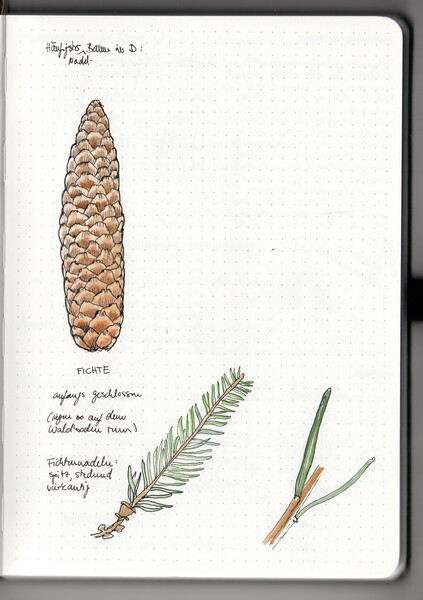 Häufigster Baum in D:
Nadel-
FICHTE
anfangs geschlossen
(liegen so auf dem
Waldboden rum)
Fichtennadeln:
spitz, stechend
vierkantig